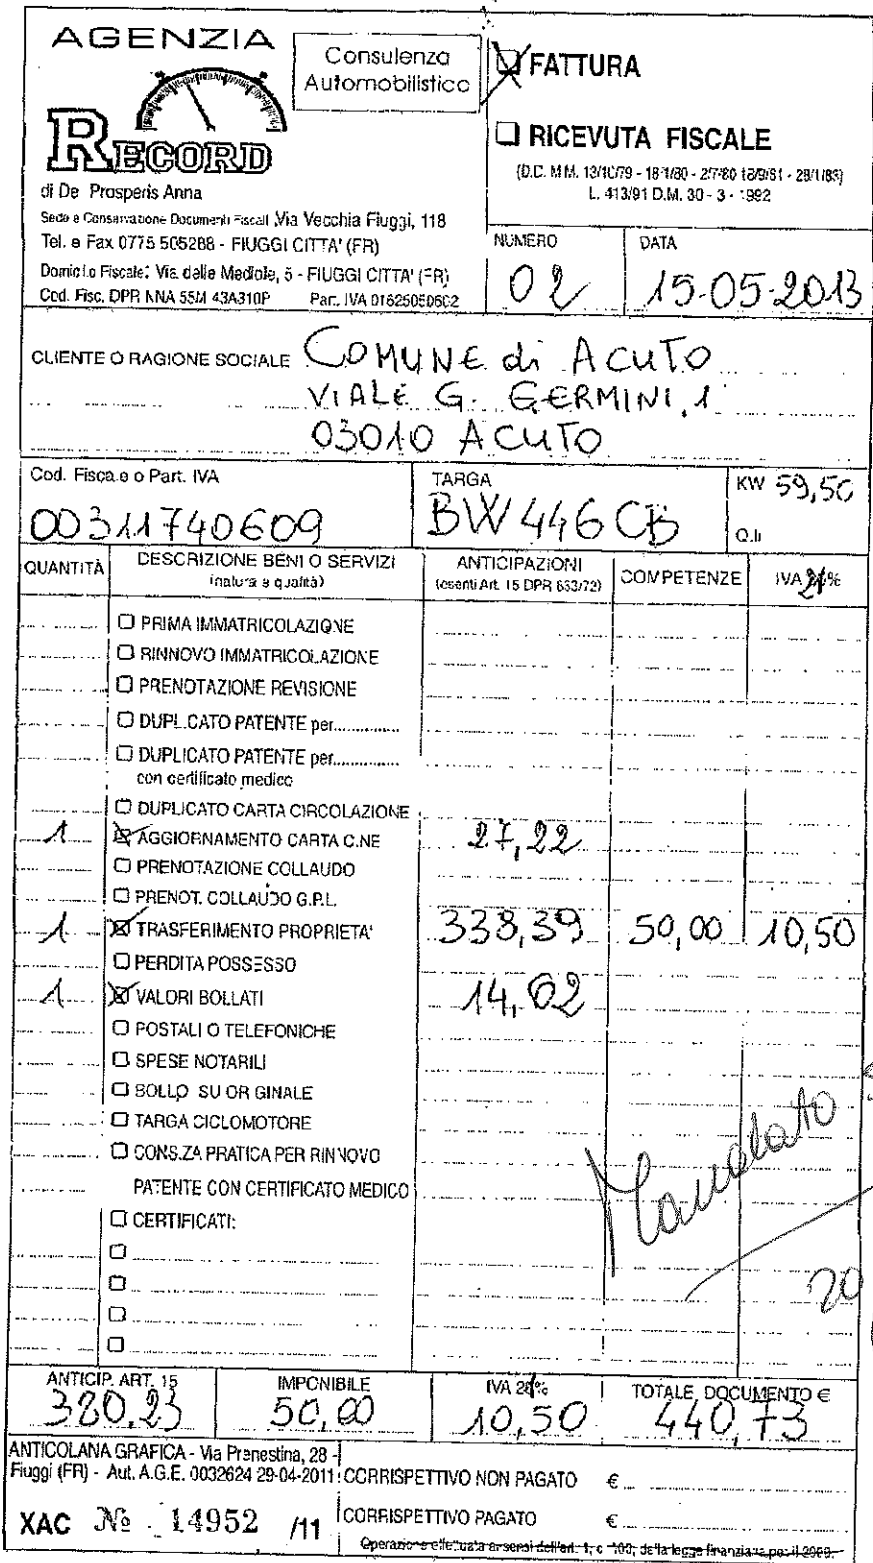 AGENZIA
RECORD
Consulenza
Automobilistica
di De Prosperis Anna
Sede e Conservazione Documenti Fiscali Via Vecchia Fiuggi, 118
Tel. e Fax 0775 505288 - FIUGGI CITTA' (FR)
Domicilio Fiscale: Via delle Mediole, 5 - FIUGGI CITTA' (FR)
Cod. Fisc. DPR NNA 55M 43A310P Part. IVA
FATTURA
RICEVUTA FISCALE
(D.C. M.M. 13/10/79 - 18/1/80 - 2/7/80 18/9/81 - 28/1/83)
L. 413/91 D.M. 30 - 3 - 1992
NUMERO DATA
02 15-05-2013
CLIENTE O RAGIONE SOCIALE COMUNE di ACUTO
VIALE G. GERMINI, 1
03010 ACUTO
Cod. Fiscale o Part. IVA TARGA KW 59,50
00311740609 BW 446 CB Q.li
QUANTITÀ DESCRIZIONE BENI O SERVIZI (natura e qualità) ANTICIPAZIONI (esenti Art. 15 DPR 633/72) COMPETENZE IVA 21%
PRIMA IMMATRICOLAZIONE
RINNOVO IMMATRICOLAZIONE
PRENOTAZIONE REVISIONE
DUPLICATO PATENTE per..............
DUPLICATO PATENTE per..............
con certificato medico
DUPLICATO CARTA CIRCOLAZIONE
1 AGGIORNAMENTO CARTA C.NE 27,22
PRENOTAZIONE COLLAUDO
PRENOT. COLLAUDO G.P.L.
1 TRASFERIMENTO PROPRIETA' 338,39 50,00 10,50
PERDITA POSSESSO
1 VALORI BOLLATI 14,62
POSTALI O TELEFONICHE
SPESE NOTARILI
BOLLO SU ORIGINALE
TARGA CICLOMOTORE
CONS.ZA PRATICA PER RINNOVO
PATENTE CON CERTIFICATO MEDICO
Mandato
CERTIFICATI:
20
ANTICIP. ART. 15 IMPONIBILE IVA 21% TOTALE DOCUMENTO €
380,23 50,00 10,50 440,73
ANTICOLANA GRAFICA - Via Prenestina, 28 -
Fiuggi (FR) - Aut. A.G.E. 0032624 29-04-2011
CORRISPETTIVO NON PAGATO €
XAC № 14952 /11
CORRISPETTIVO PAGATO €
Operazione effettuata ai sensi dell'art. 1, c. 100, della legge finanziaria per il